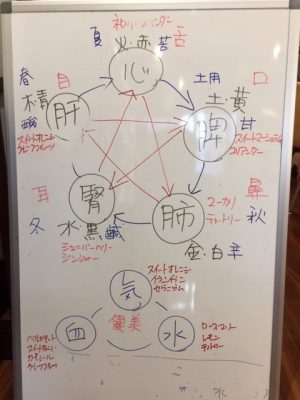 ネロリ・ラベンダー
夏
火・赤 苦 舌
心
春
木・青
目
酸
肝
スイートオレンジ
グレープフルーツ
土用
口
土・黄
脾
甘
スイートマージョラム
コリアンダー
耳
腎
冬
水・黒 鹹
ジュニパーベリー
ジンジャー
鼻
肺
秋
ユーカリ
ティートリー
金・白 辛
気
スイートオレンジ
イランイラン
ゼラニウム
健美
血
水
スイートオレンジ
グレープフルーツ
レモン